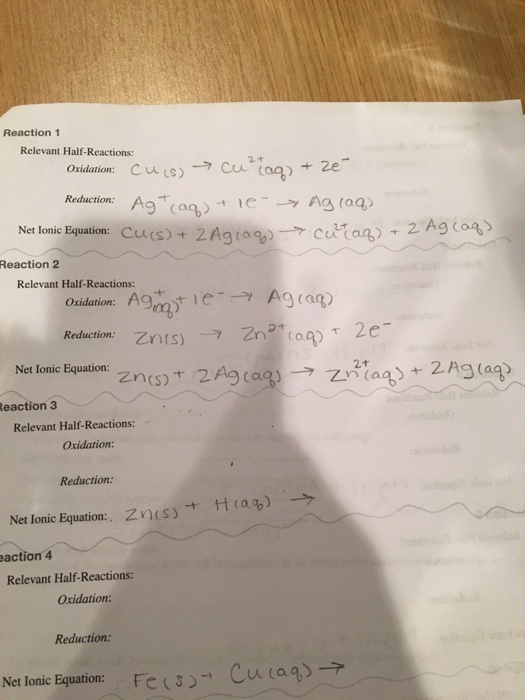 Reaction 1
Relevant Half-Reactions:
Oxidation: Cu(s) → Cu²⁺(aq) + 2e⁻
Reduction: Ag⁺(aq) + 1e⁻ → Ag(aq)
Net Ionic Equation: Cu(s) + 2Ag(aq) → Cu²⁺(aq) + 2Ag(aq)
Reaction 2
Relevant Half-Reactions:
Oxidation: Ag⁺(aq) + 1e⁻ → Ag(aq)
Reduction: Zn(s) → Zn²⁺(aq) + 2e⁻
Net Ionic Equation: Zn(s) + 2Ag(aq) → Zn²⁺(aq) + 2Ag(aq)
Reaction 3
Relevant Half-Reactions:
Oxidation:
Reduction:
Net Ionic Equation: Zn(s) + H(aq) →
eaction 4
Relevant Half-Reactions:
Oxidation:
Reduction:
Net Ionic Equation: Fe(s) + Cu(aq) →